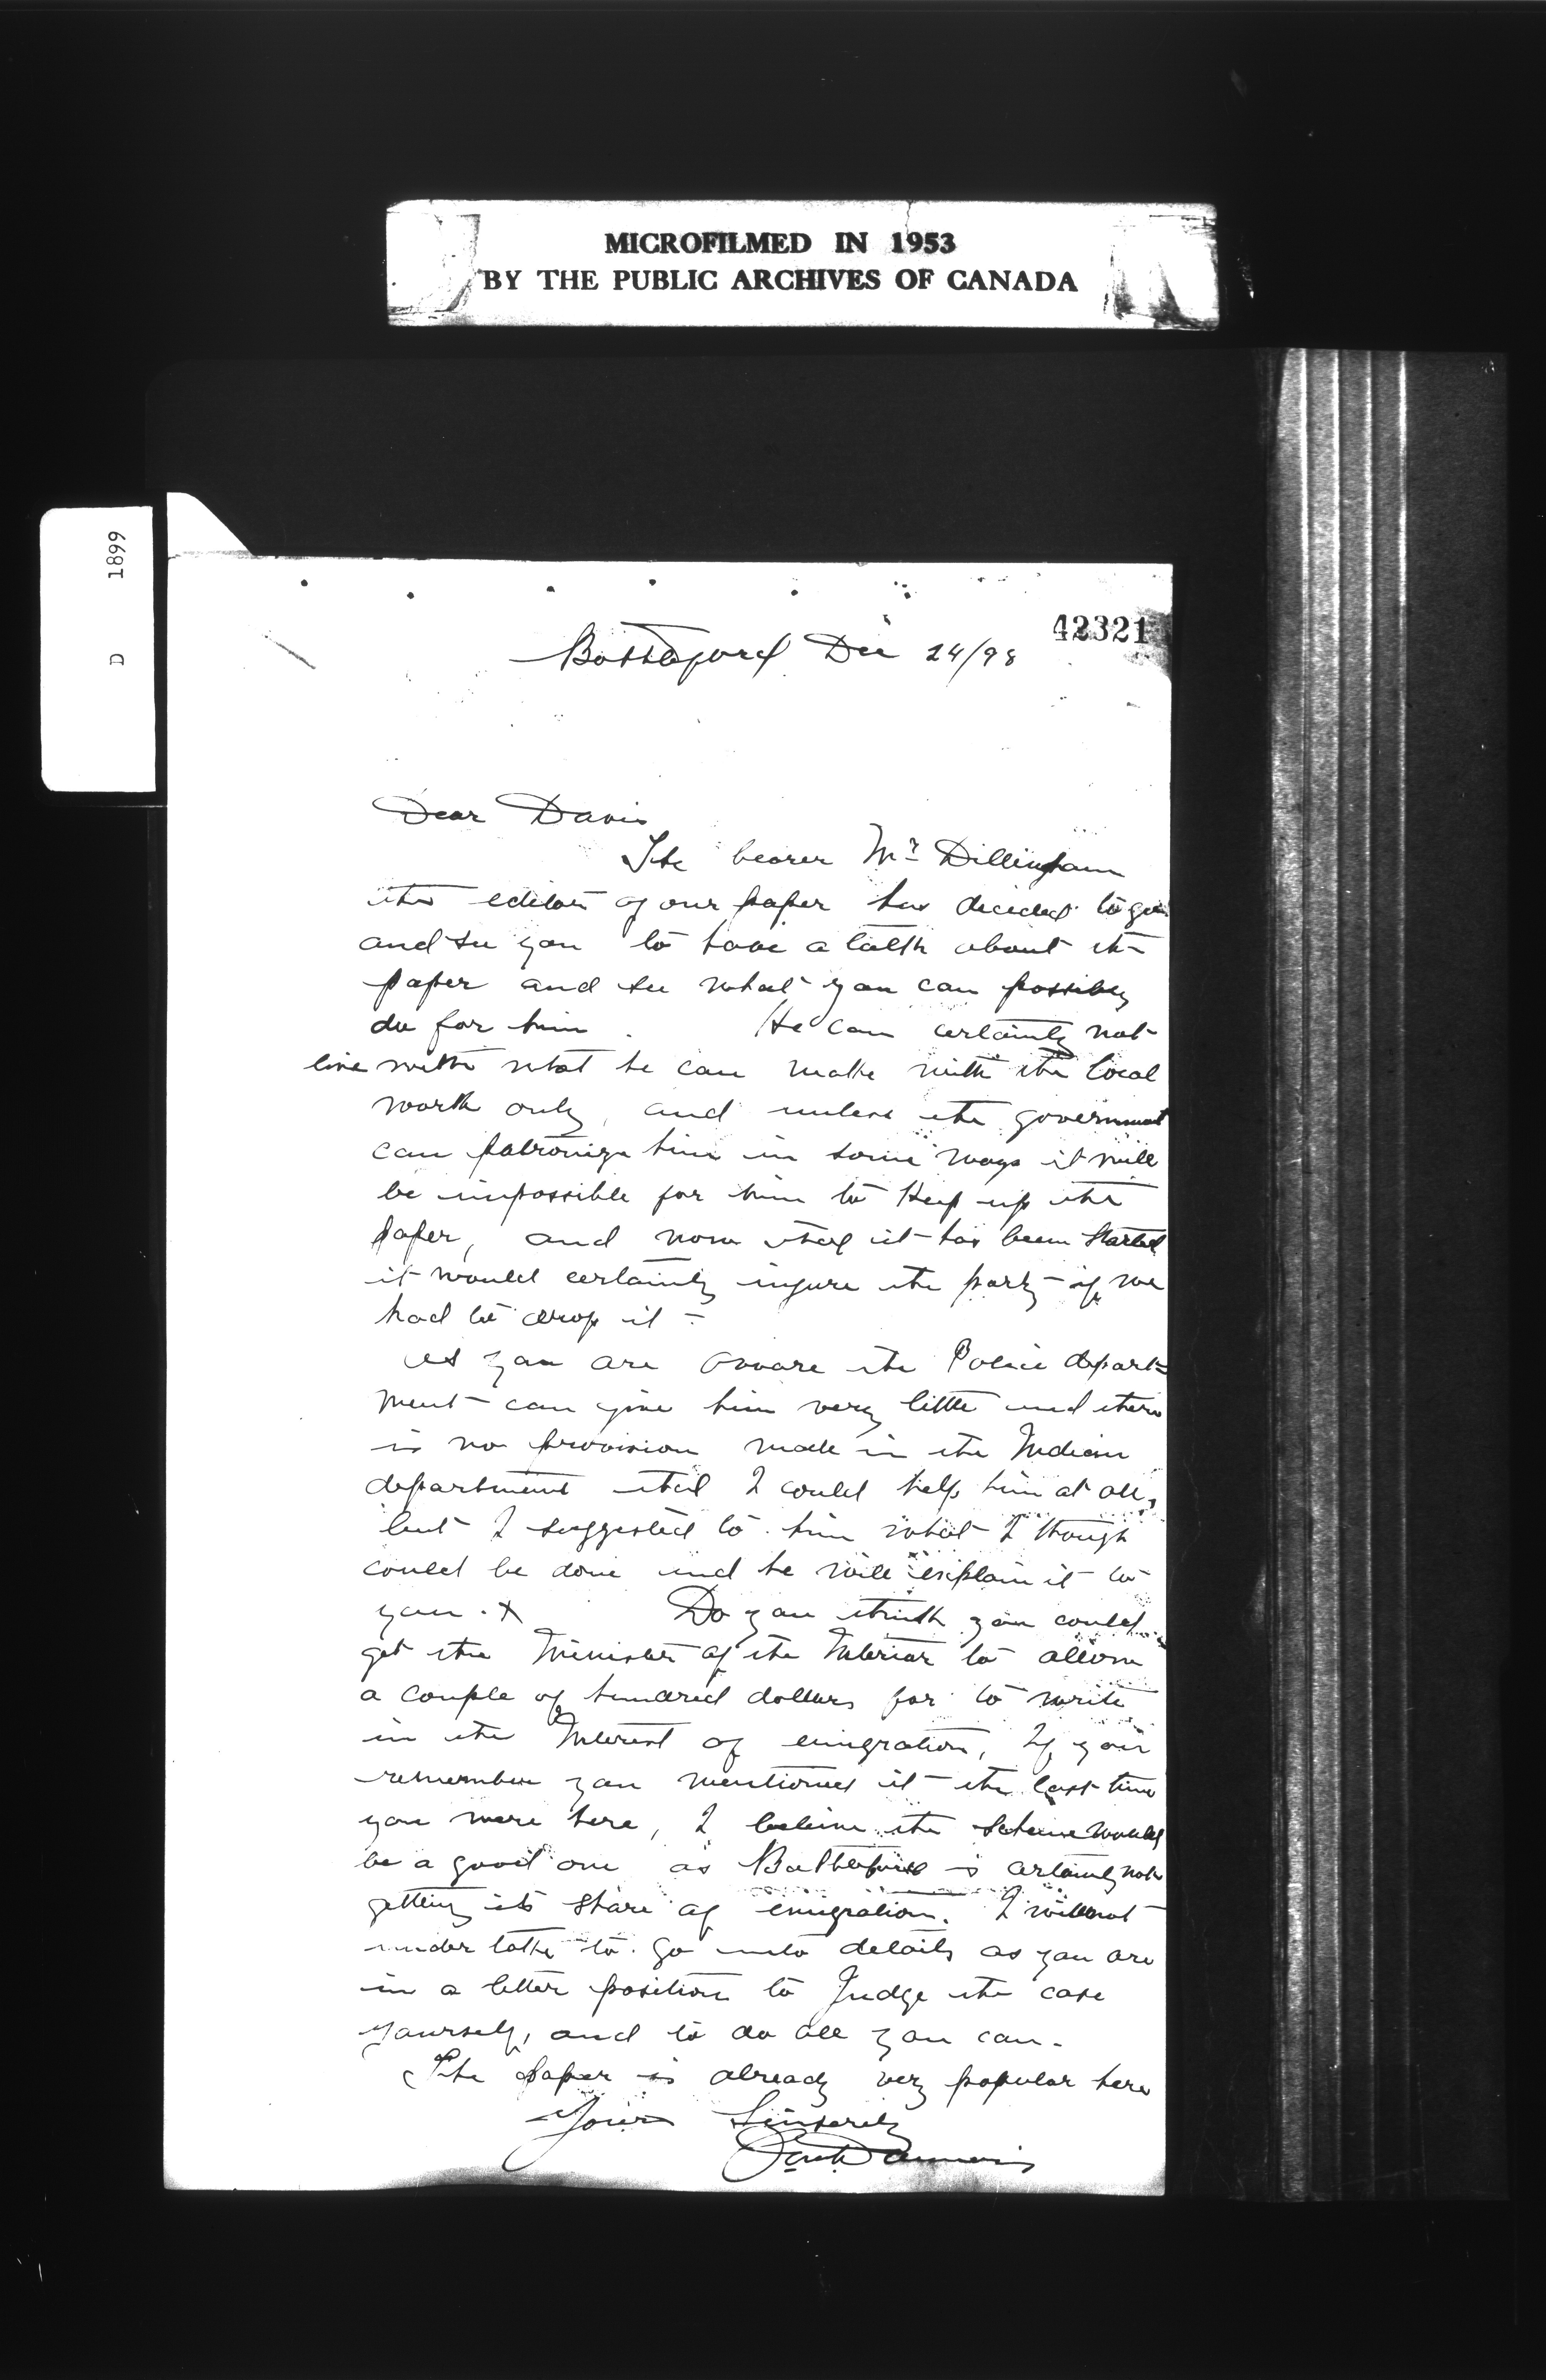 MICROFILMED IN 1953
BY THE PUBLIC ARCHIVES OF CANADA
D 1899
42321
Battleford Dec 24/98
Dear Davis
The bearer Mr Dillingham
the editor of our paper has decided to go
and see you to have a talk about the
paper and see what you can possibly
do for him. He can certainly not
live with what he can make with the local
work only, and unless the government
can patronize him in some ways it will
be impossible for him to keep up the
paper, and now that it has been started
it would certainly injure the party if we
had to drop it -
As you are aware the Police depart=
ment can give him very little and there
is no provision made in the Indian
department that I could help him at all,
but I suggested to him what I though
could be done and he will explain it to
you. X Do you think you could
get the Minister of the Interior to allow
a couple of hundred dollars for to write
in the Interest of emigration, If you
remember you mentioned it the last time
you were here, I believe the scheme would
be a good one as Battleford is certainly not
getting its share of emigration. I will not
under take to go into details as you are
in a better position to Judge the case
yourself, and to do all you can.
The paper is already very popular here
Yours Sincerely